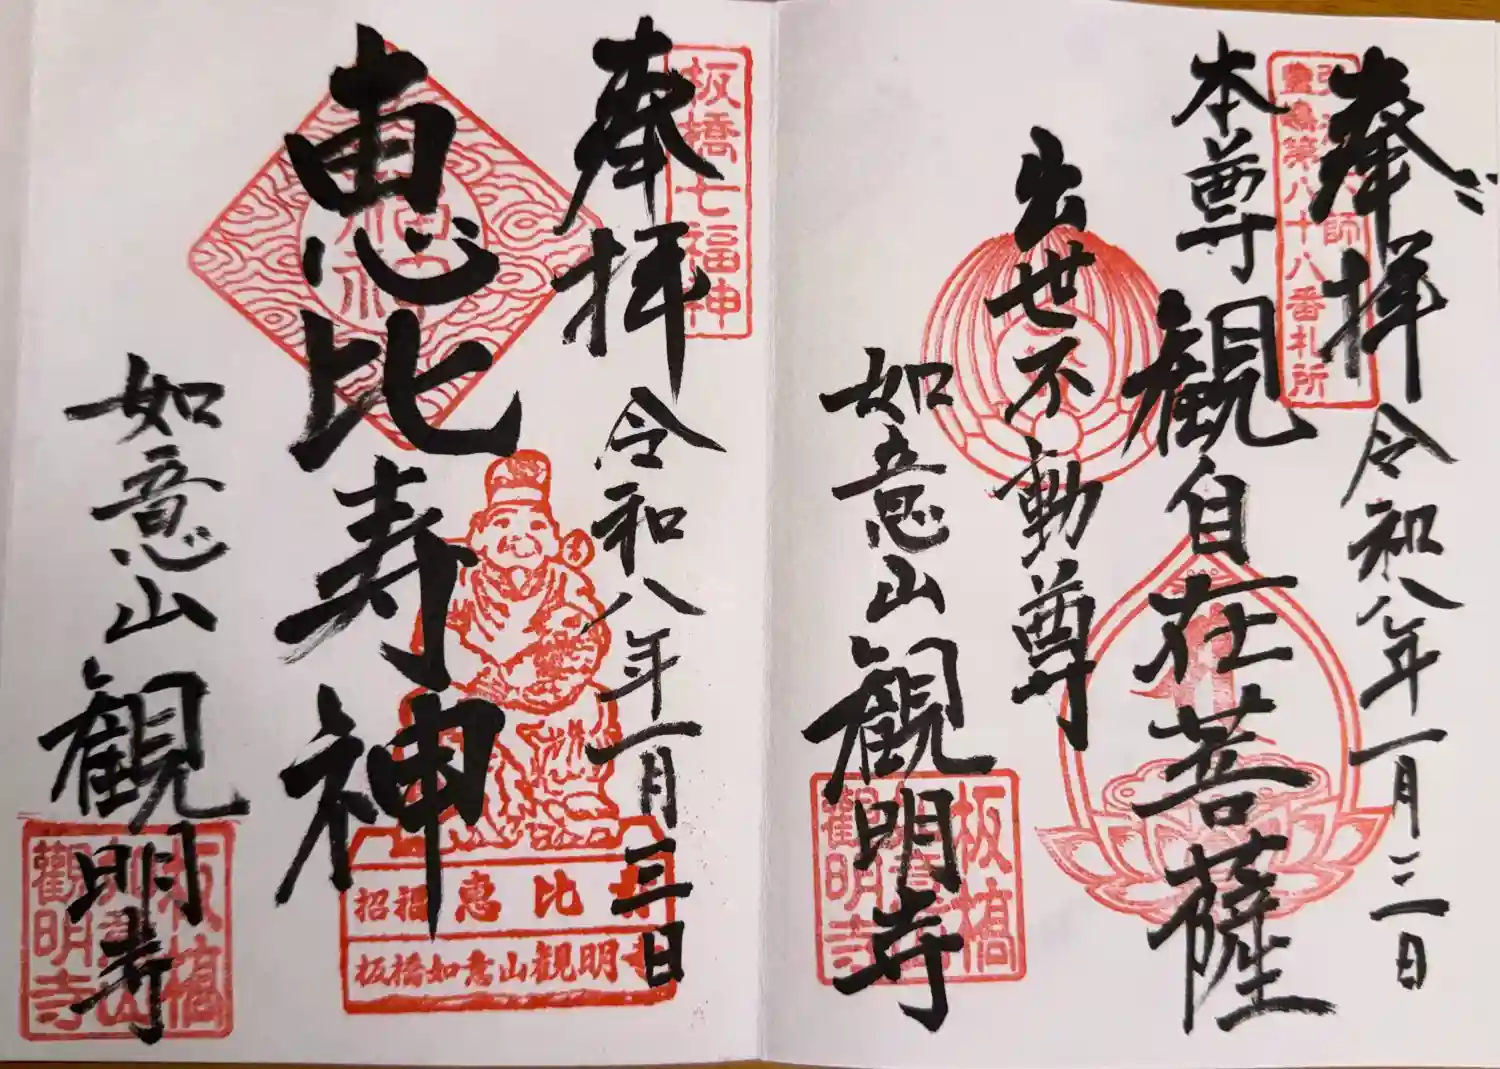 奉拝
令和八年一月三日
本尊
観自在菩薩
出世不動尊
如意山
観明寺
豊島第八十八番札所
板橋
観明寺
奉拝
令和八年一月三日
板橋七福神
恵比寿神
如意山
観明寺
招福 恵比寿
板橋如意山観明寺
板橋
観明寺